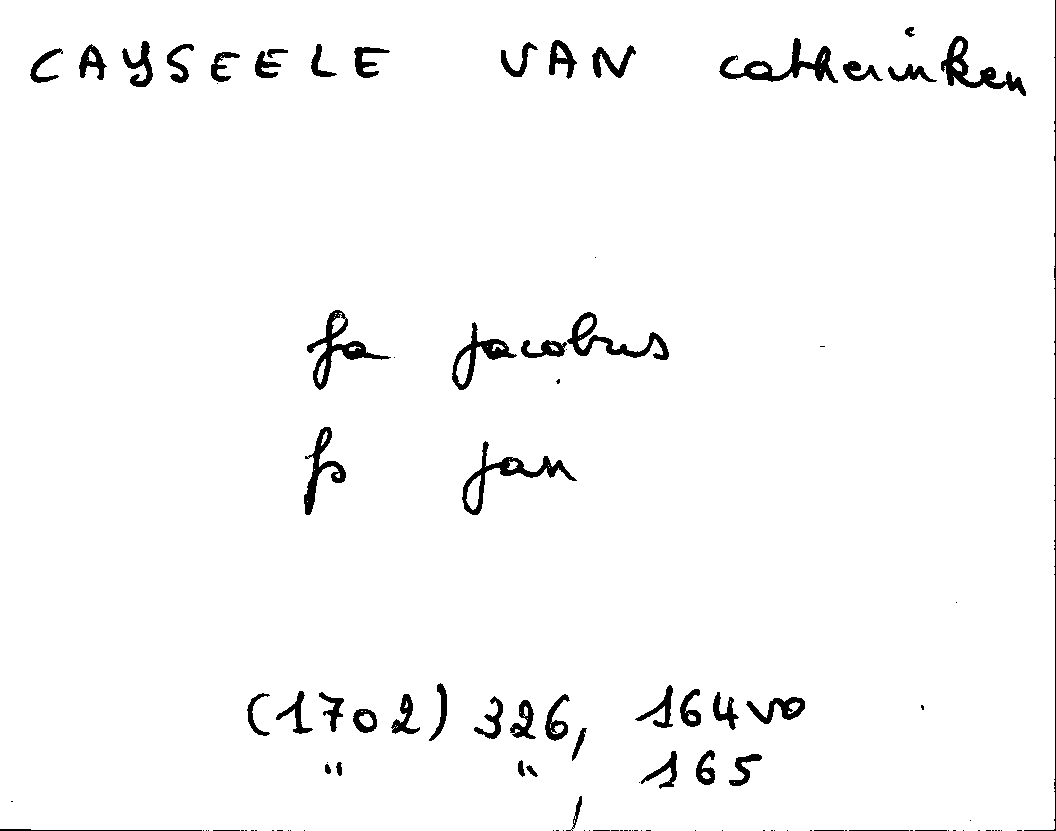 CAYSEELE VAN catherinken
fa jacobus
fs jan
(1702) 326, 164vo
" ", 165